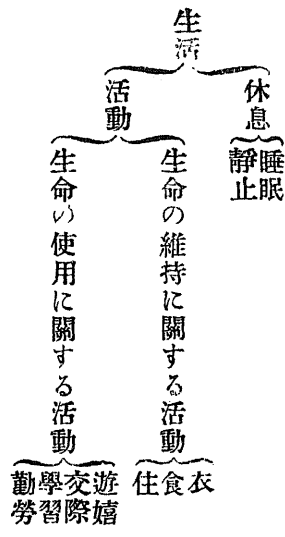 生活
休息
睡眠
靜止
活動
生命の維持に關する活動
衣
食
住
生命の使用に關する活動
遊嬉
交際
學習
勤勞